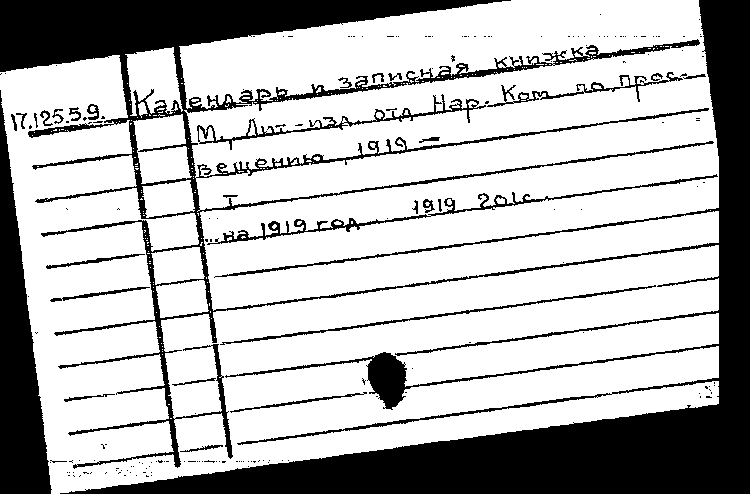 17.125.5.9. Календарь и записная книжка
М., Лит-изд. отд Нар. Ком по прос-
вещению, 1919 —
I
...на 1919 год 1919 201с.